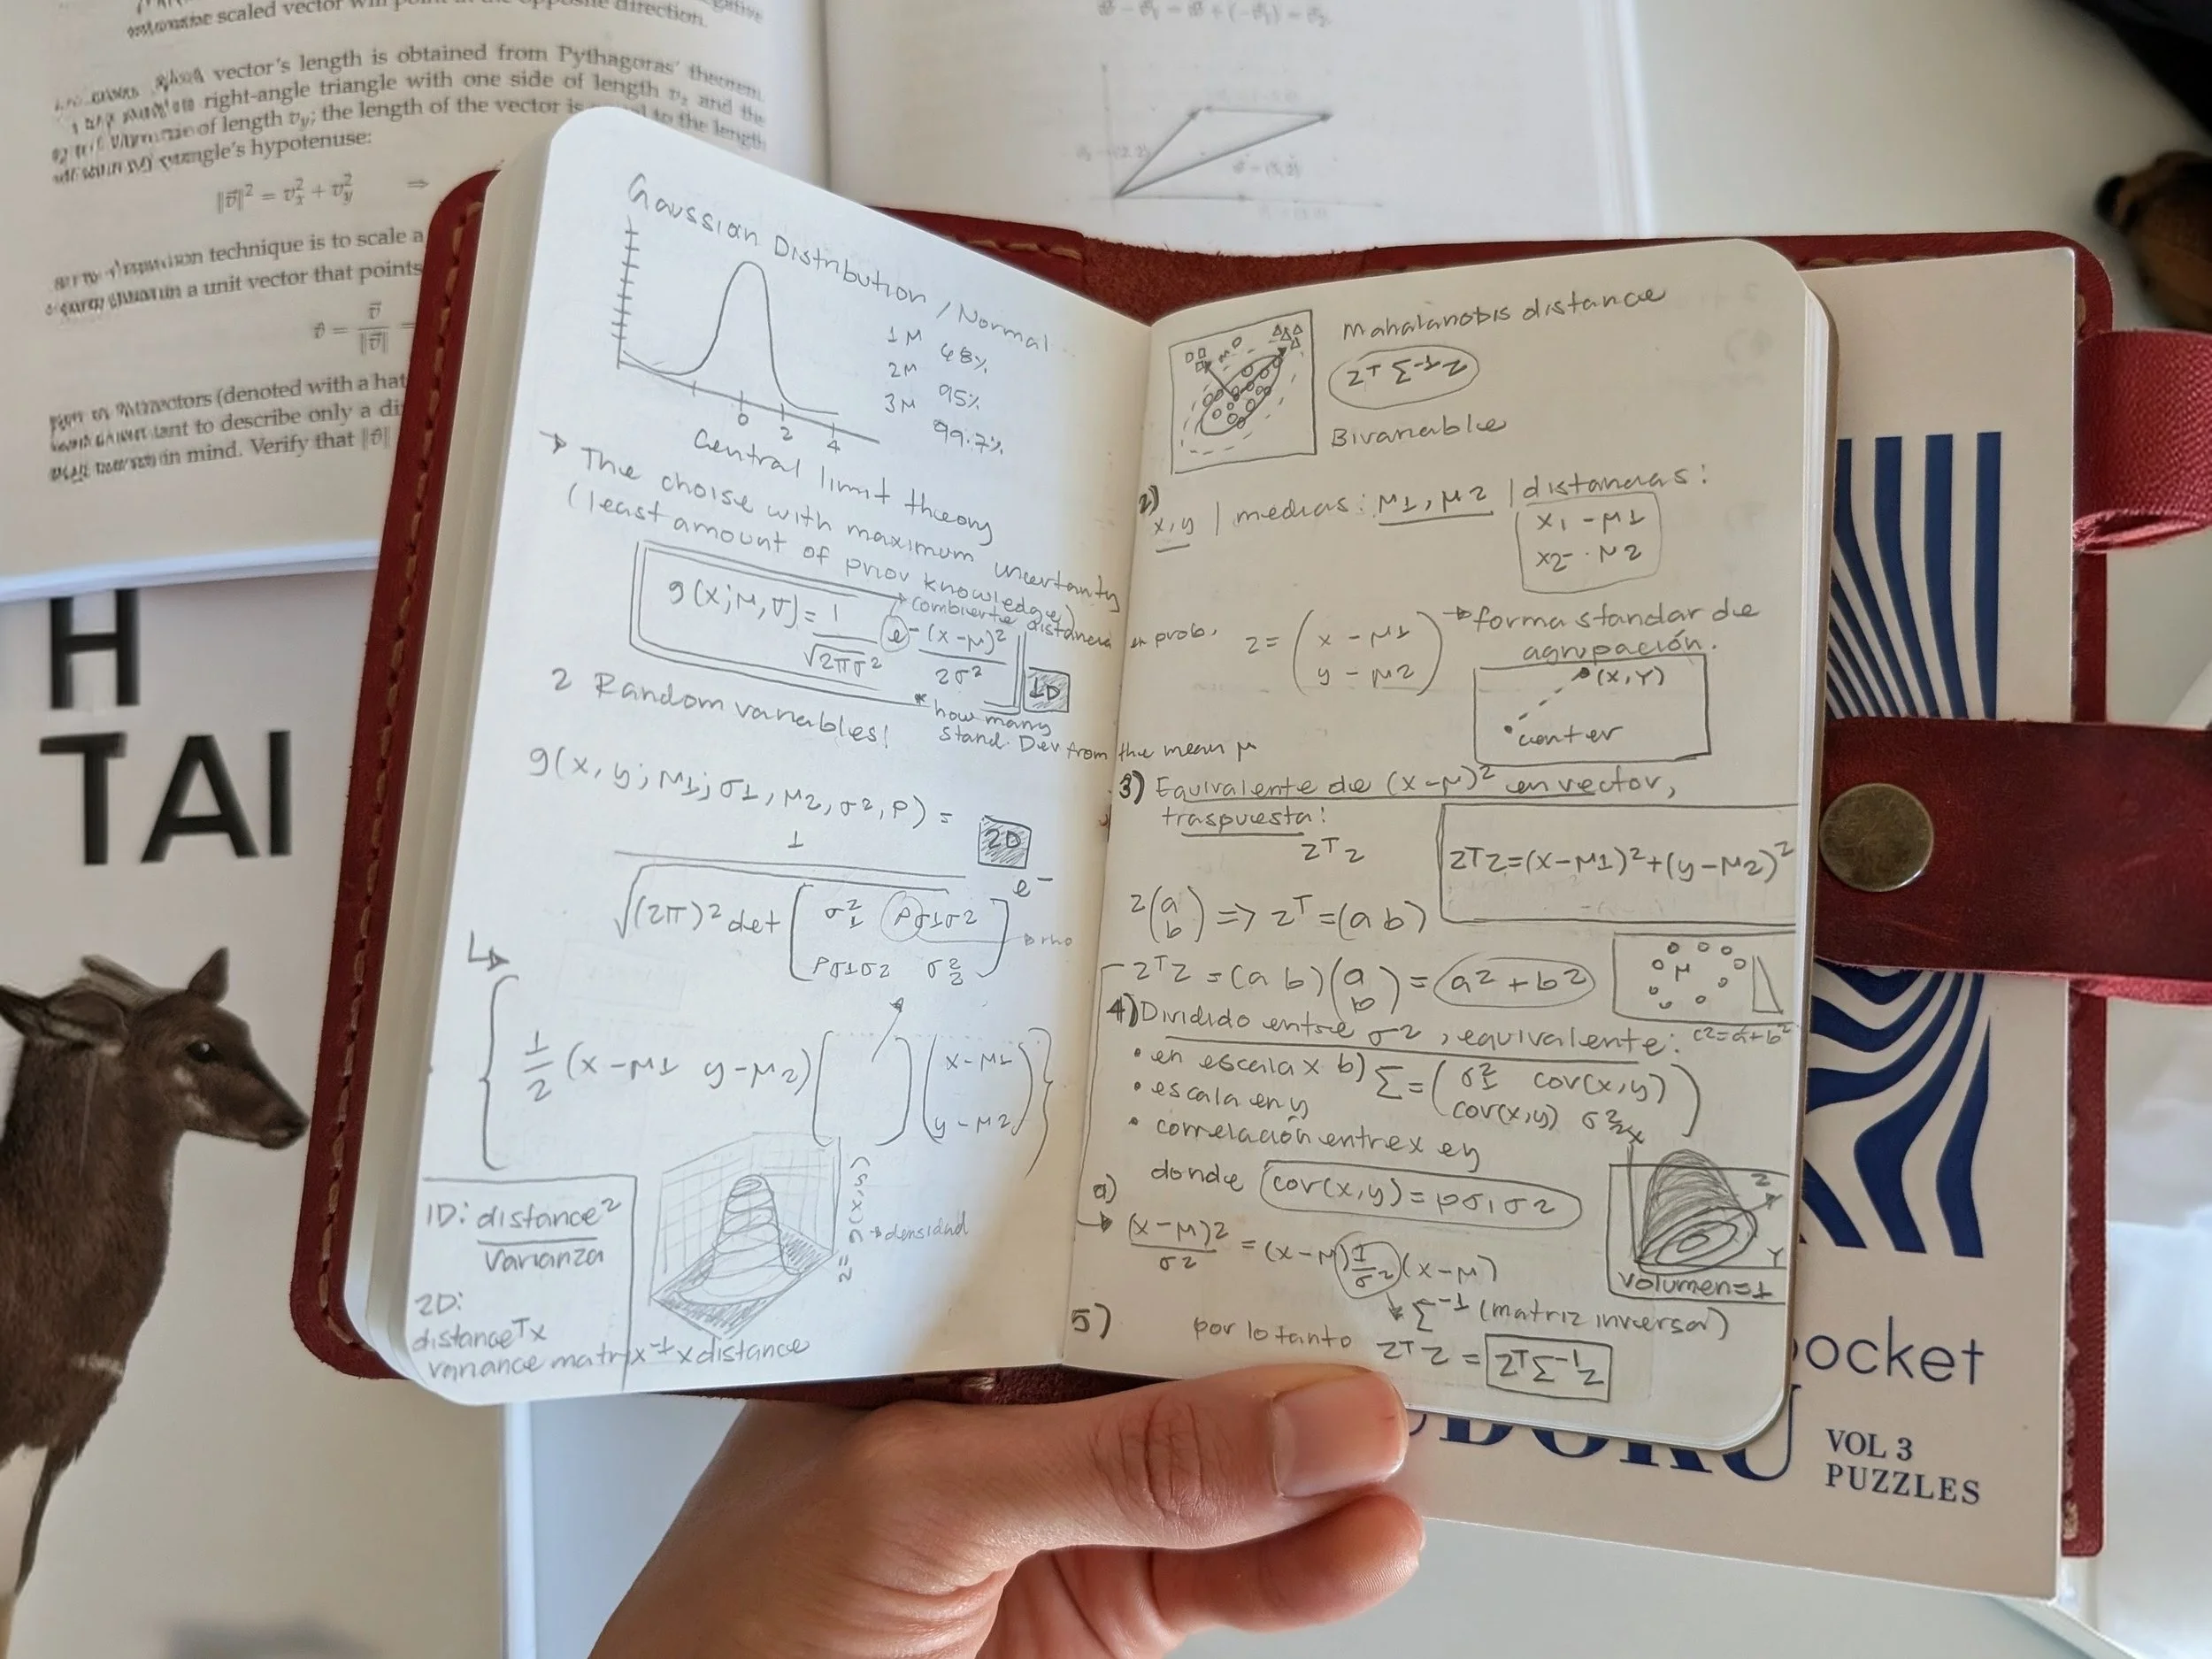 scaled vector will point in the opposite direction.
vector's length is obtained from Pythagoras' theorem.
right-angle triangle with one side of length v₂ and the
of length v_y; the length of the vector is to the length
hypotenuse:
‖v⃗‖² = v_x² + v_y² ⇒
technique is to scale a
a unit vector that points
v̂ = v⃗ / ‖v⃗‖ =
(denoted with a hat
to describe only a di
in mind. Verify that ‖v̂‖
H
TAI
Gaussian Distribution / Normal
1M 68%
2M 95%
3M 99.7%
0 2 4
Central limit theory
→ The choise with maximum uncertanty
(least amount of prior knowledge)
combierte distancia en prob.
g(x;μ,σ) = 1 / √2πσ² e - (x-μ)² / 2σ²
1D
* how many
stand. Dev from the mean μ
2 Random variables!
g(x,y; μ1; σ1, μ2, σ2, ρ) =
2D
1 / √(2π)² det [ σ²₁ ρσ1σ2
ρσ1σ2 σ²₂ ] e-
rho
{ 1/2 (x-μ1 y-μ2) [ ] ( x-μ1
y-μ2 ) }
1D: distance²
varianza
z = g(x,y) → densidad
2D:
distanceᵀ x
variance matrix⁻¹ x distance
Mahalanobis distance
zᵀ Σ⁻¹ z
Bivariable
2) x,y | medias: μ1, μ2 | distancias:
x1 - μ1
x2 - μ2
z = ( x - μ1
y - μ2 ) → forma standar de
agrupación.
(x,y)
center
3) Equivalente de (x-μ)² en vector,
traspuesta:
zᵀz
zᵀz=(x-μ1)²+(y-μ2)²
z(a
b) => zᵀ=(a b)
zᵀz = (a b)(a
b) = a2 + b2
μ
c2=a+b²
4) Dividido entre σ2, equivalente:
• en escala x b) Σ = ( σ²₁ cov(x,y)
• escala en y cov(x,y) σ²₂ )
• correlación entre x e y
donde cov(x,y) = ρσ1σ2
x
z
Y
volumen=1
a) → (x-μ)2 / σ2 = (x-μ) 1/σ2 (x-μ)
Σ⁻¹ (matriz inversa)
5) por lo tanto zᵀz = zᵀΣ⁻¹z
ocket
VOL 3
PUZZLES